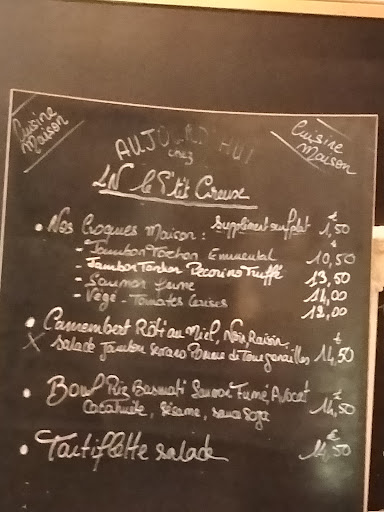 Cuisine Maison
Cuisine Maison
AUJOURD'HUI
chez
LN le P'tit Creuse
• Nos Croques Maison : Supplément œuf plat 1,50
- Jambon Torchon Emmental 10,50
- Jambon Torchon Pecorino Truffé 13,50
- Saumon fumé 14,00
- Végé - Tomates Cerises 12,00
• Camembert Rôti au Miel, Noix, Raisin,
Salade Jambon Serano Pomme de Terre Grenailles 14,50 €
• Bowl Riz Basmati Saumon Fumé, Avocat
Cacahuète, Sésame, sauce Soja 14,50 €
• Tartiflette salade 14,50 €